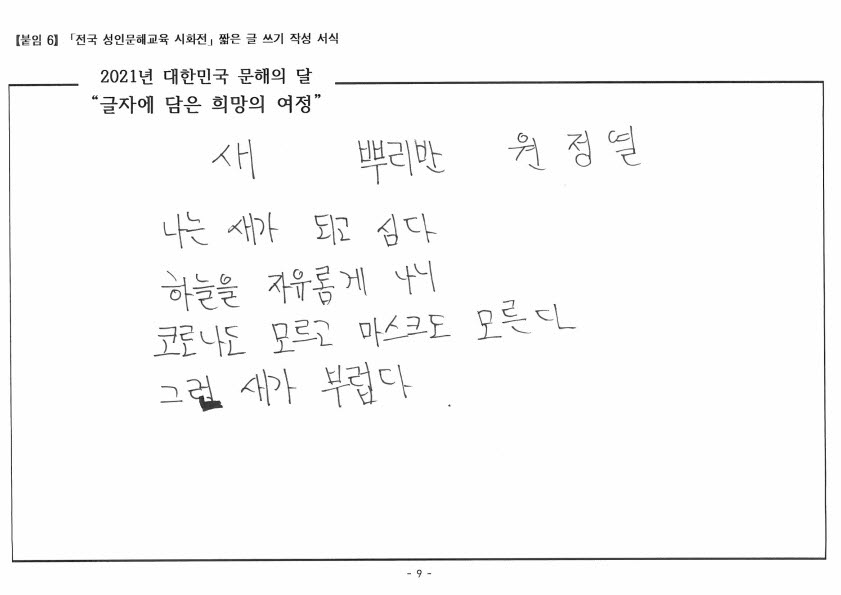 【붙임 6】 「전국 성인문해교육 시화전」 짧은 글 쓰기 작성 서식
2021년 대한민국 문해의 달
“글자에 담은 희망의 여정”
새 뿌리반 원정열
나는 새가 되고 심다
하늘을 자유롭게 나니
코로나도 모르고 마스크도 모른다
그럼 새가 부럽다.
- 9 -